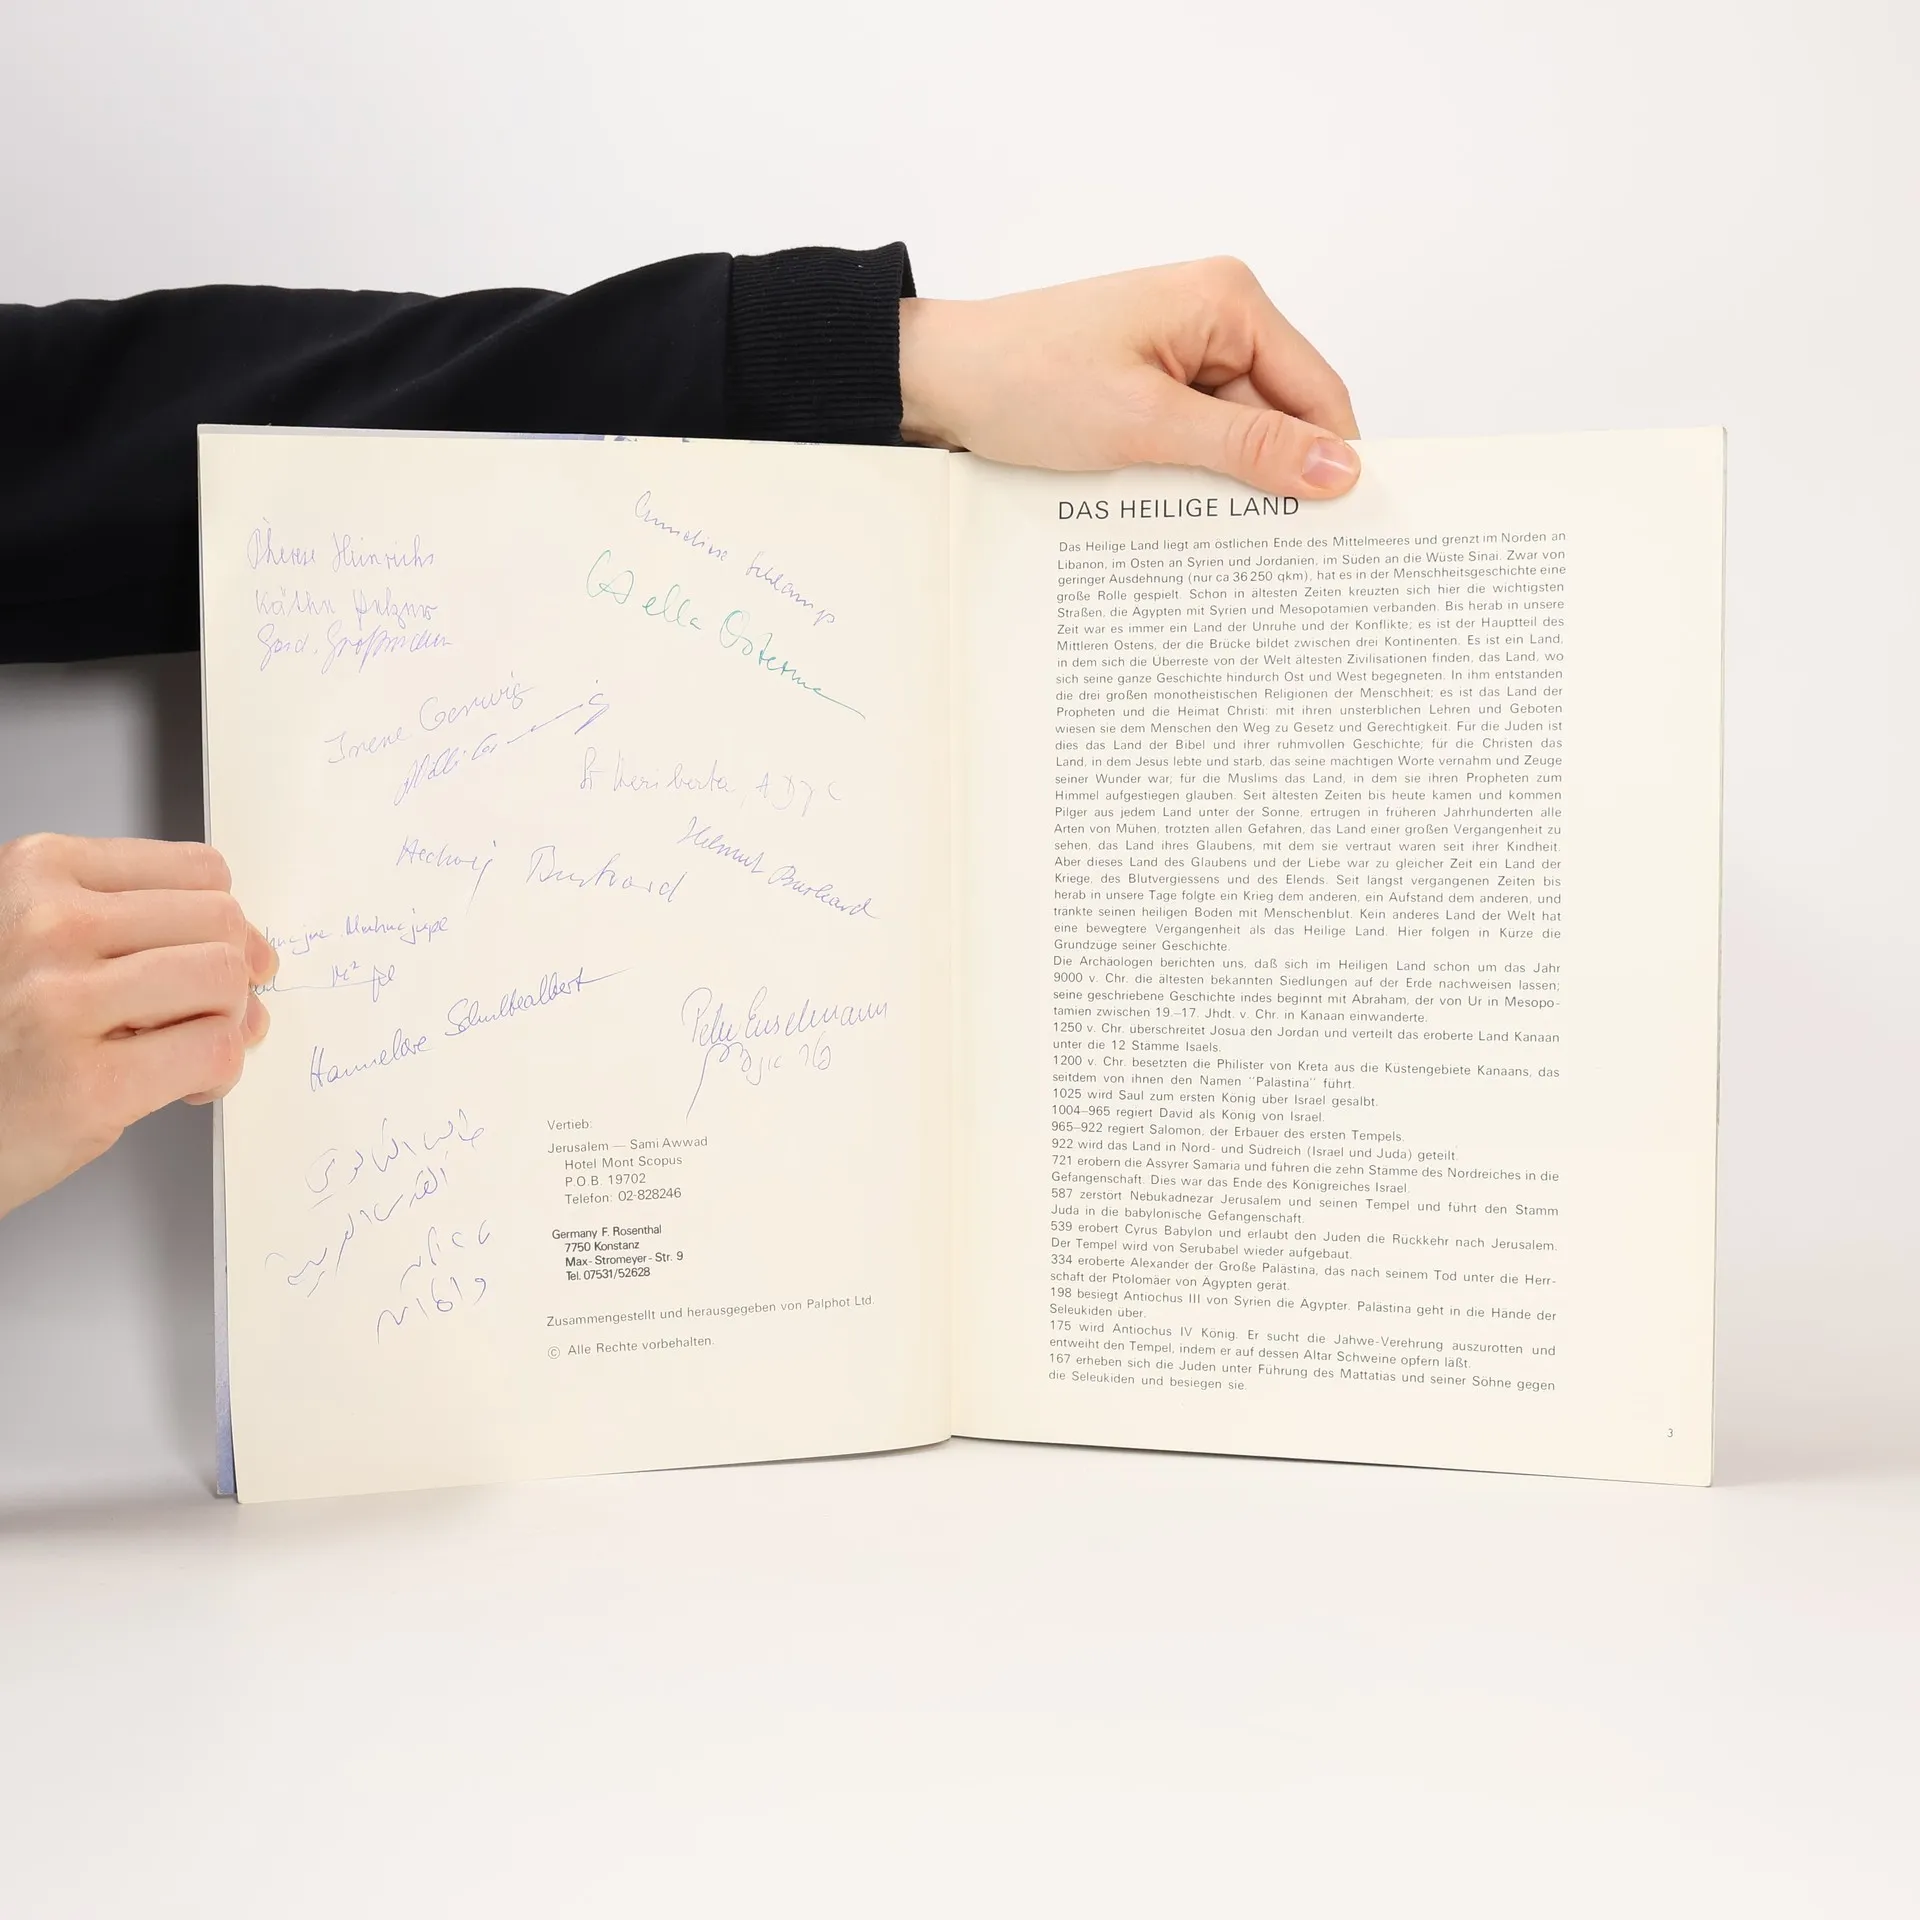 Therese Heinrichs
Irene Gerwig
Hedwig Burkard
Helmut Burkard
Hannelore
Peter Enselmann
Vertieb:
Jerusalem — Sami Awwad
Hotel Mont Scopus
P.O.B. 19702
Telefon: 02-828246
Germany F. Rosenthal
7750 Konstanz
Max-Stromeyer-Str. 9
Tel. 07531/52628
Zusammengestellt und herausgegeben von Palphot Ltd.
© Alle Rechte vorbehalten.
DAS HEILIGE LAND
Das Heilige Land liegt am östlichen Ende des Mittelmeeres und grenzt im Norden an
Libanon, im Osten an Syrien und Jordanien, im Süden an die Wüste Sinai. Zwar von
geringer Ausdehnung (nur ca 36250 qkm), hat es in der Menschheitsgeschichte eine
große Rolle gespielt. Schon in ältesten Zeiten kreuzten sich hier die wichtigsten
Straßen, die Ägypten mit Syrien und Mesopotamien verbanden. Bis herab in unsere
Zeit war es immer ein Land der Unruhe und der Konflikte; es ist der Hauptteil des
Mittleren Ostens, der die Brücke bildet zwischen drei Kontinenten. Es ist ein Land,
in dem sich die Überreste von der Welt ältesten Zivilisationen finden, das Land, wo
sich seine ganze Geschichte hindurch Ost und West begegneten. In ihm entstanden
die drei großen monotheistischen Religionen der Menschheit; es ist das Land der
Propheten und die Heimat Christi: mit ihren unsterblichen Lehren und Geboten
wiesen sie dem Menschen den Weg zu Gesetz und Gerechtigkeit. Für die Juden ist
dies das Land der Bibel und ihrer ruhmvollen Geschichte; für die Christen das
Land, in dem Jesus lebte und starb, das seine mächtigen Worte vernahm und Zeuge
seiner Wunder war; für die Muslims das Land, in dem sie ihren Propheten zum
Himmel aufgestiegen glauben. Seit ältesten Zeiten bis heute kamen und kommen
Pilger aus jedem Land unter der Sonne, ertrugen in früheren Jahrhunderten alle
Arten von Mühen, trotzten allen Gefahren, das Land einer großen Vergangenheit zu
sehen, das Land ihres Glaubens, mit dem sie vertraut waren seit ihrer Kindheit.
Aber dieses Land des Glaubens und der Liebe war zu gleicher Zeit ein Land der
Kriege, des Blutvergiessens und des Elends. Seit längst vergangenen Zeiten bis
herab in unsere Tage folgte ein Krieg dem anderen, ein Aufstand dem anderen, und
tränkte seinen heiligen Boden mit Menschenblut. Kein anderes Land der Welt hat
eine bewegtere Vergangenheit als das Heilige Land. Hier folgen in Kürze die
Grundzüge seiner Geschichte.
Die Archäologen berichten uns, daß sich im Heiligen Land schon um das Jahr
9000 v. Chr. die ältesten bekannten Siedlungen auf der Erde nachweisen lassen;
seine geschriebene Geschichte indes beginnt mit Abraham, der von Ur in Mesopo-
tamien zwischen 19.–17. Jhdt. v. Chr. in Kanaan einwanderte.
1250 v. Chr. überschreitet Josua den Jordan und verteilt das eroberte Land Kanaan
unter die 12 Stämme Isaels.
1200 v. Chr. besetzten die Philister von Kreta aus die Küstengebiete Kanaans, das
seitdem von ihnen den Namen "Palästina" führt.
1025 wird Saul zum ersten König über Israel gesalbt.
1004–965 regiert David als König von Israel.
965–922 regiert Salomon, der Erbauer des ersten Tempels.
922 wird das Land in Nord- und Südreich (Israel und Juda) geteilt.
721 erobern die Assyrer Samaria und führen die zehn Stämme des Nordreiches in die
Gefangenschaft. Dies war das Ende des Königreiches Israel.
587 zerstört Nebukadnezar Jerusalem und seinen Tempel und führt den Stamm
Juda in die babylonische Gefangenschaft.
539 erobert Cyrus Babylon und erlaubt den Juden die Rückkehr nach Jerusalem.
Der Tempel wird von Serubabel wieder aufgebaut.
334 eroberte Alexander der Große Palästina, das nach seinem Tod unter die Herr-
schaft der Ptolomäer von Ägypten gerät.
198 besiegt Antiochus III von Syrien die Ägypter. Palästina geht in die Hände der
Seleukiden über.
175 wird Antiochus IV König. Er sucht die Jahwe-Verehrung auszurotten und
entweiht den Tempel, indem er auf dessen Altar Schweine opfern läßt.
167 erheben sich die Juden unter Führung des Mattatias und seiner Söhne gegen
die Seleukiden und besiegen sie.
3